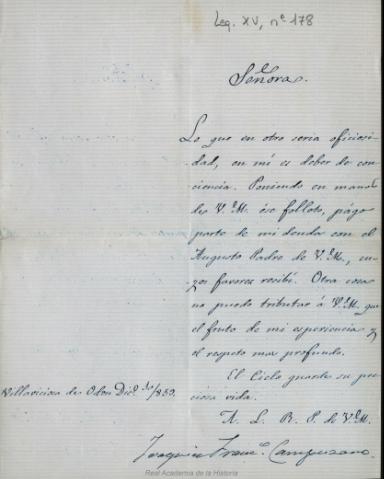 Leg. XV, nº 178
Señora.
Lo que en otro seria oficiosi-
dad, en mí es deber de con-
ciencia. Poniendo en manos
de V.M. ese folleto, págo
parte de mi deuda con el
Augusto Padre de V.M., cu-
yos favores recibí. Otra cosa
no puedo tributar á V.M. que
el fruto de mi esperiencia y
el respeto mas profundo.
El Cielo guarde su pre-
ciosa vida.
Villaviciosa de Odon Dic.e
A. L. R. P. de V.M.
Joaquin Franc.o Campuzano
Real Academia de la Historia